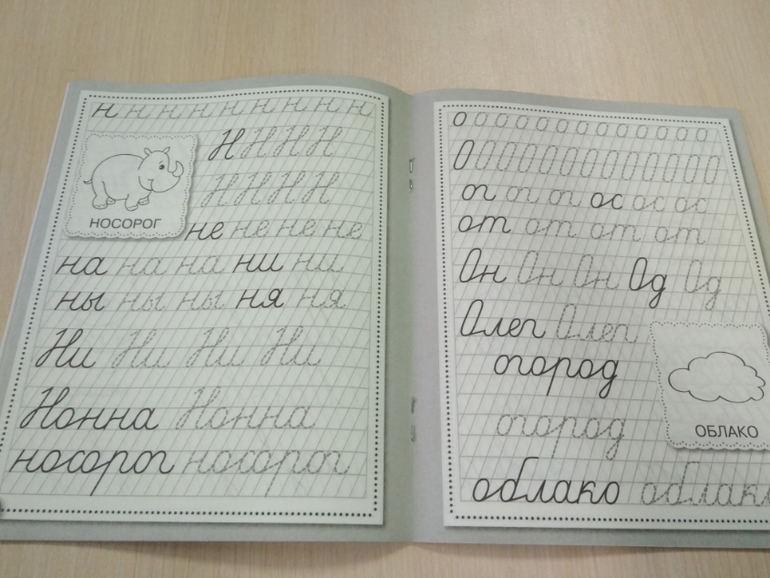 н н н н н н н н н н
Н Н Н Н
Н Н Н Н
НОСОРОГ
не не не не
на на на ни ни
ны ны ны ня ня
Ни Ни Ни Ни
Нонна Нонна
носорог носорог
о о о о о о о о о о о о о о
О О О О О О О О О О О О О О
ог ог ог ос ос ос
от от от от
Он Он Он Од Од
Олег Олег
огород
ОБЛАКО
огород
облако облако